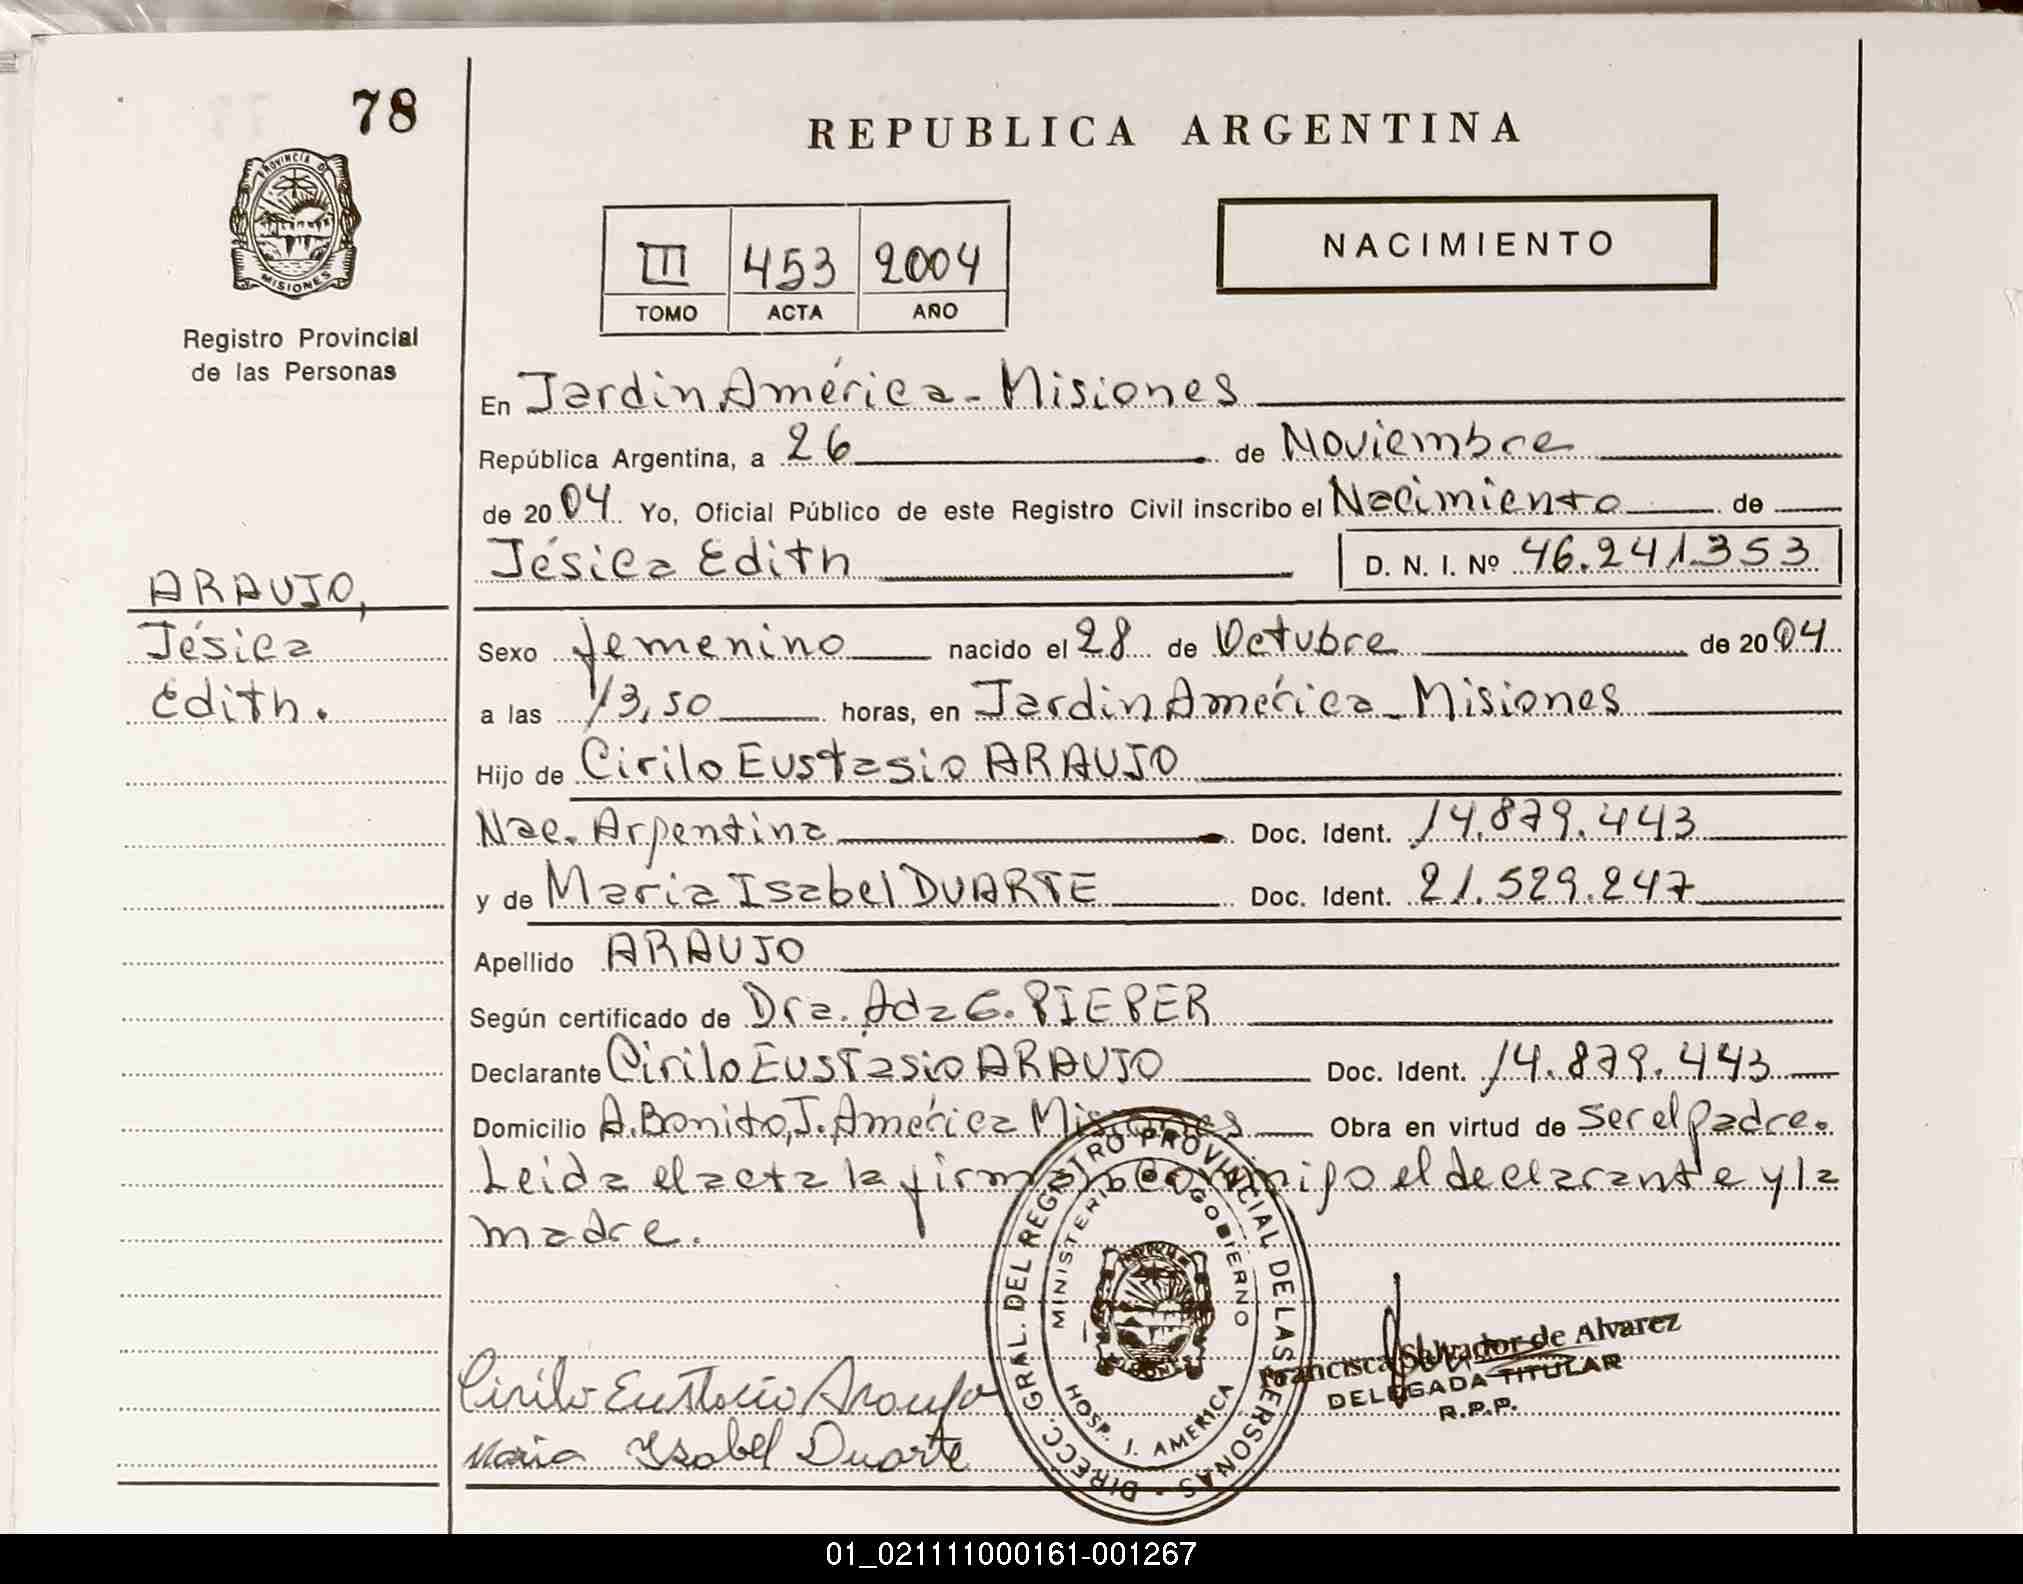 78
REPUBLICA ARGENTINA
PROVINCIA DE
MISIONES
Registro Provincial
de las Personas
III 453 2004
TOMO ACTA AÑO
NACIMIENTO
En Jardín América - Misiones
República Argentina, a 26 de Noviembre
de 2004 Yo, Oficial Público de este Registro Civil inscribo el Nacimiento de
Jésica Edith D. N. I. Nº 46.241.353
ARAUJO,
Jésica
Edith.
Sexo femenino nacido el 28 de Octubre de 2004
a las 13,50 horas, en Jardín América - Misiones
Hijo de Cirilo Eustasio ARAUJO
Nac. Argentina Doc. Ident. 14.879.443
y de Maria Isabel DUARTE Doc. Ident. 21.529.247
Apellido ARAUJO
Según certificado de Dra. Ada G. PIEPER
Declarante Cirilo Eustasio ARAUJO Doc. Ident. 14.879.443
Domicilio A. Bonito, J. América Misiones Obra en virtud de ser el padre.
Leida el acta la firman conmigo el declarante y la
madre.
DIRECC. GRAL. DEL REGISTRO PROVINCIAL DE LAS PERSONAS
MINISTERIO DE GOBIERNO
MISIONES
HOSP. J. AMERICA
Francisca Salvador de Alvarez
DELEGADA TITULAR
R.P.P.
Cirilo Eustacio Araujo
Maria Isabel Duarte
01_021111000161-001267